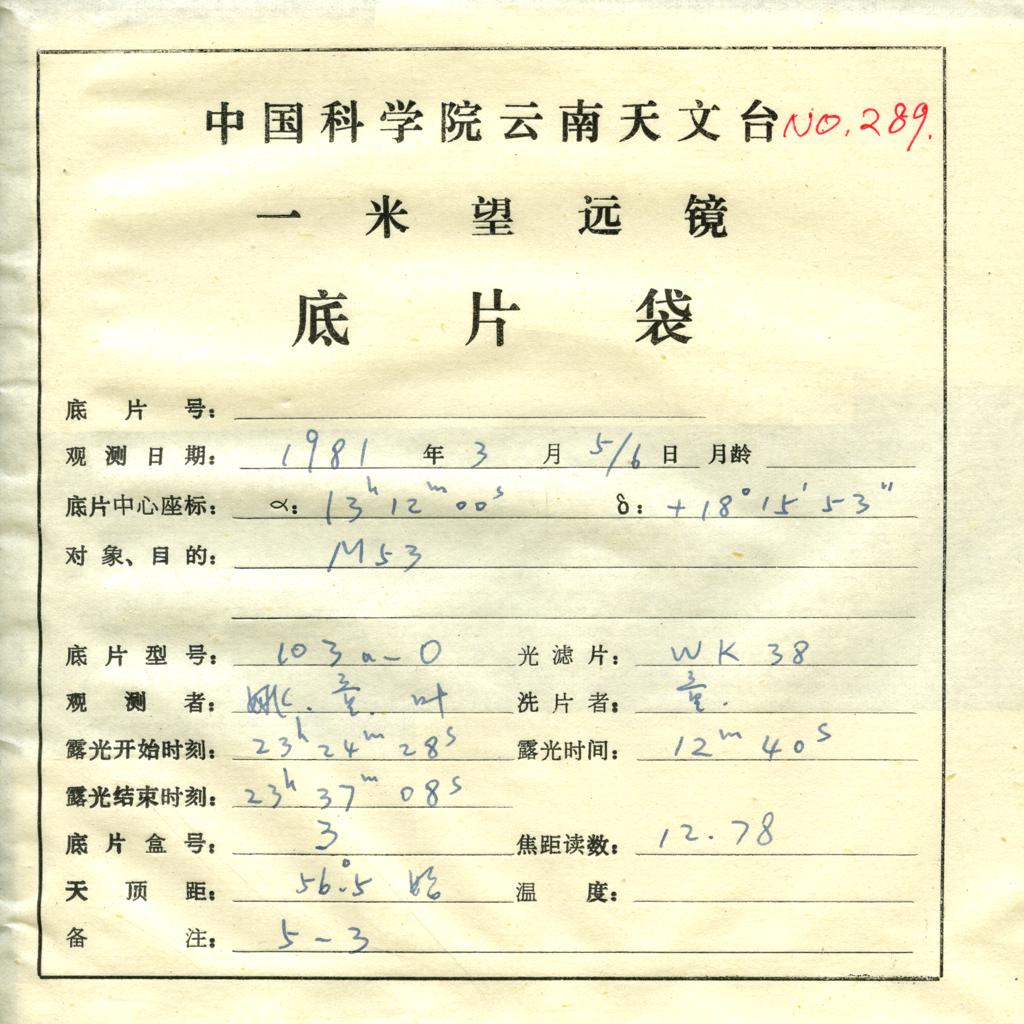 中国科学院云南天文台 NO.289.
一米望远镜
底片袋
底片号：
观测日期： 1981 年 3 月 5/6 日 月龄
底片中心座标： α： 13ʰ 12ᵐ 00ˢ δ： +18° 15′ 53″
对象、目的： M53
底片型号： 103a-O 光滤片： WK 38
观测者： 姚. 童. 叶 洗片者： 童.
露光开始时刻： 23ʰ 24ᵐ 28ˢ 露光时间： 12ᵐ 40ˢ
露光结束时刻： 23ʰ 37ᵐ 08ˢ
底片盒号： 3 焦距读数： 12.78
天顶距： 56°.5 始 温度：
备注： 5-3